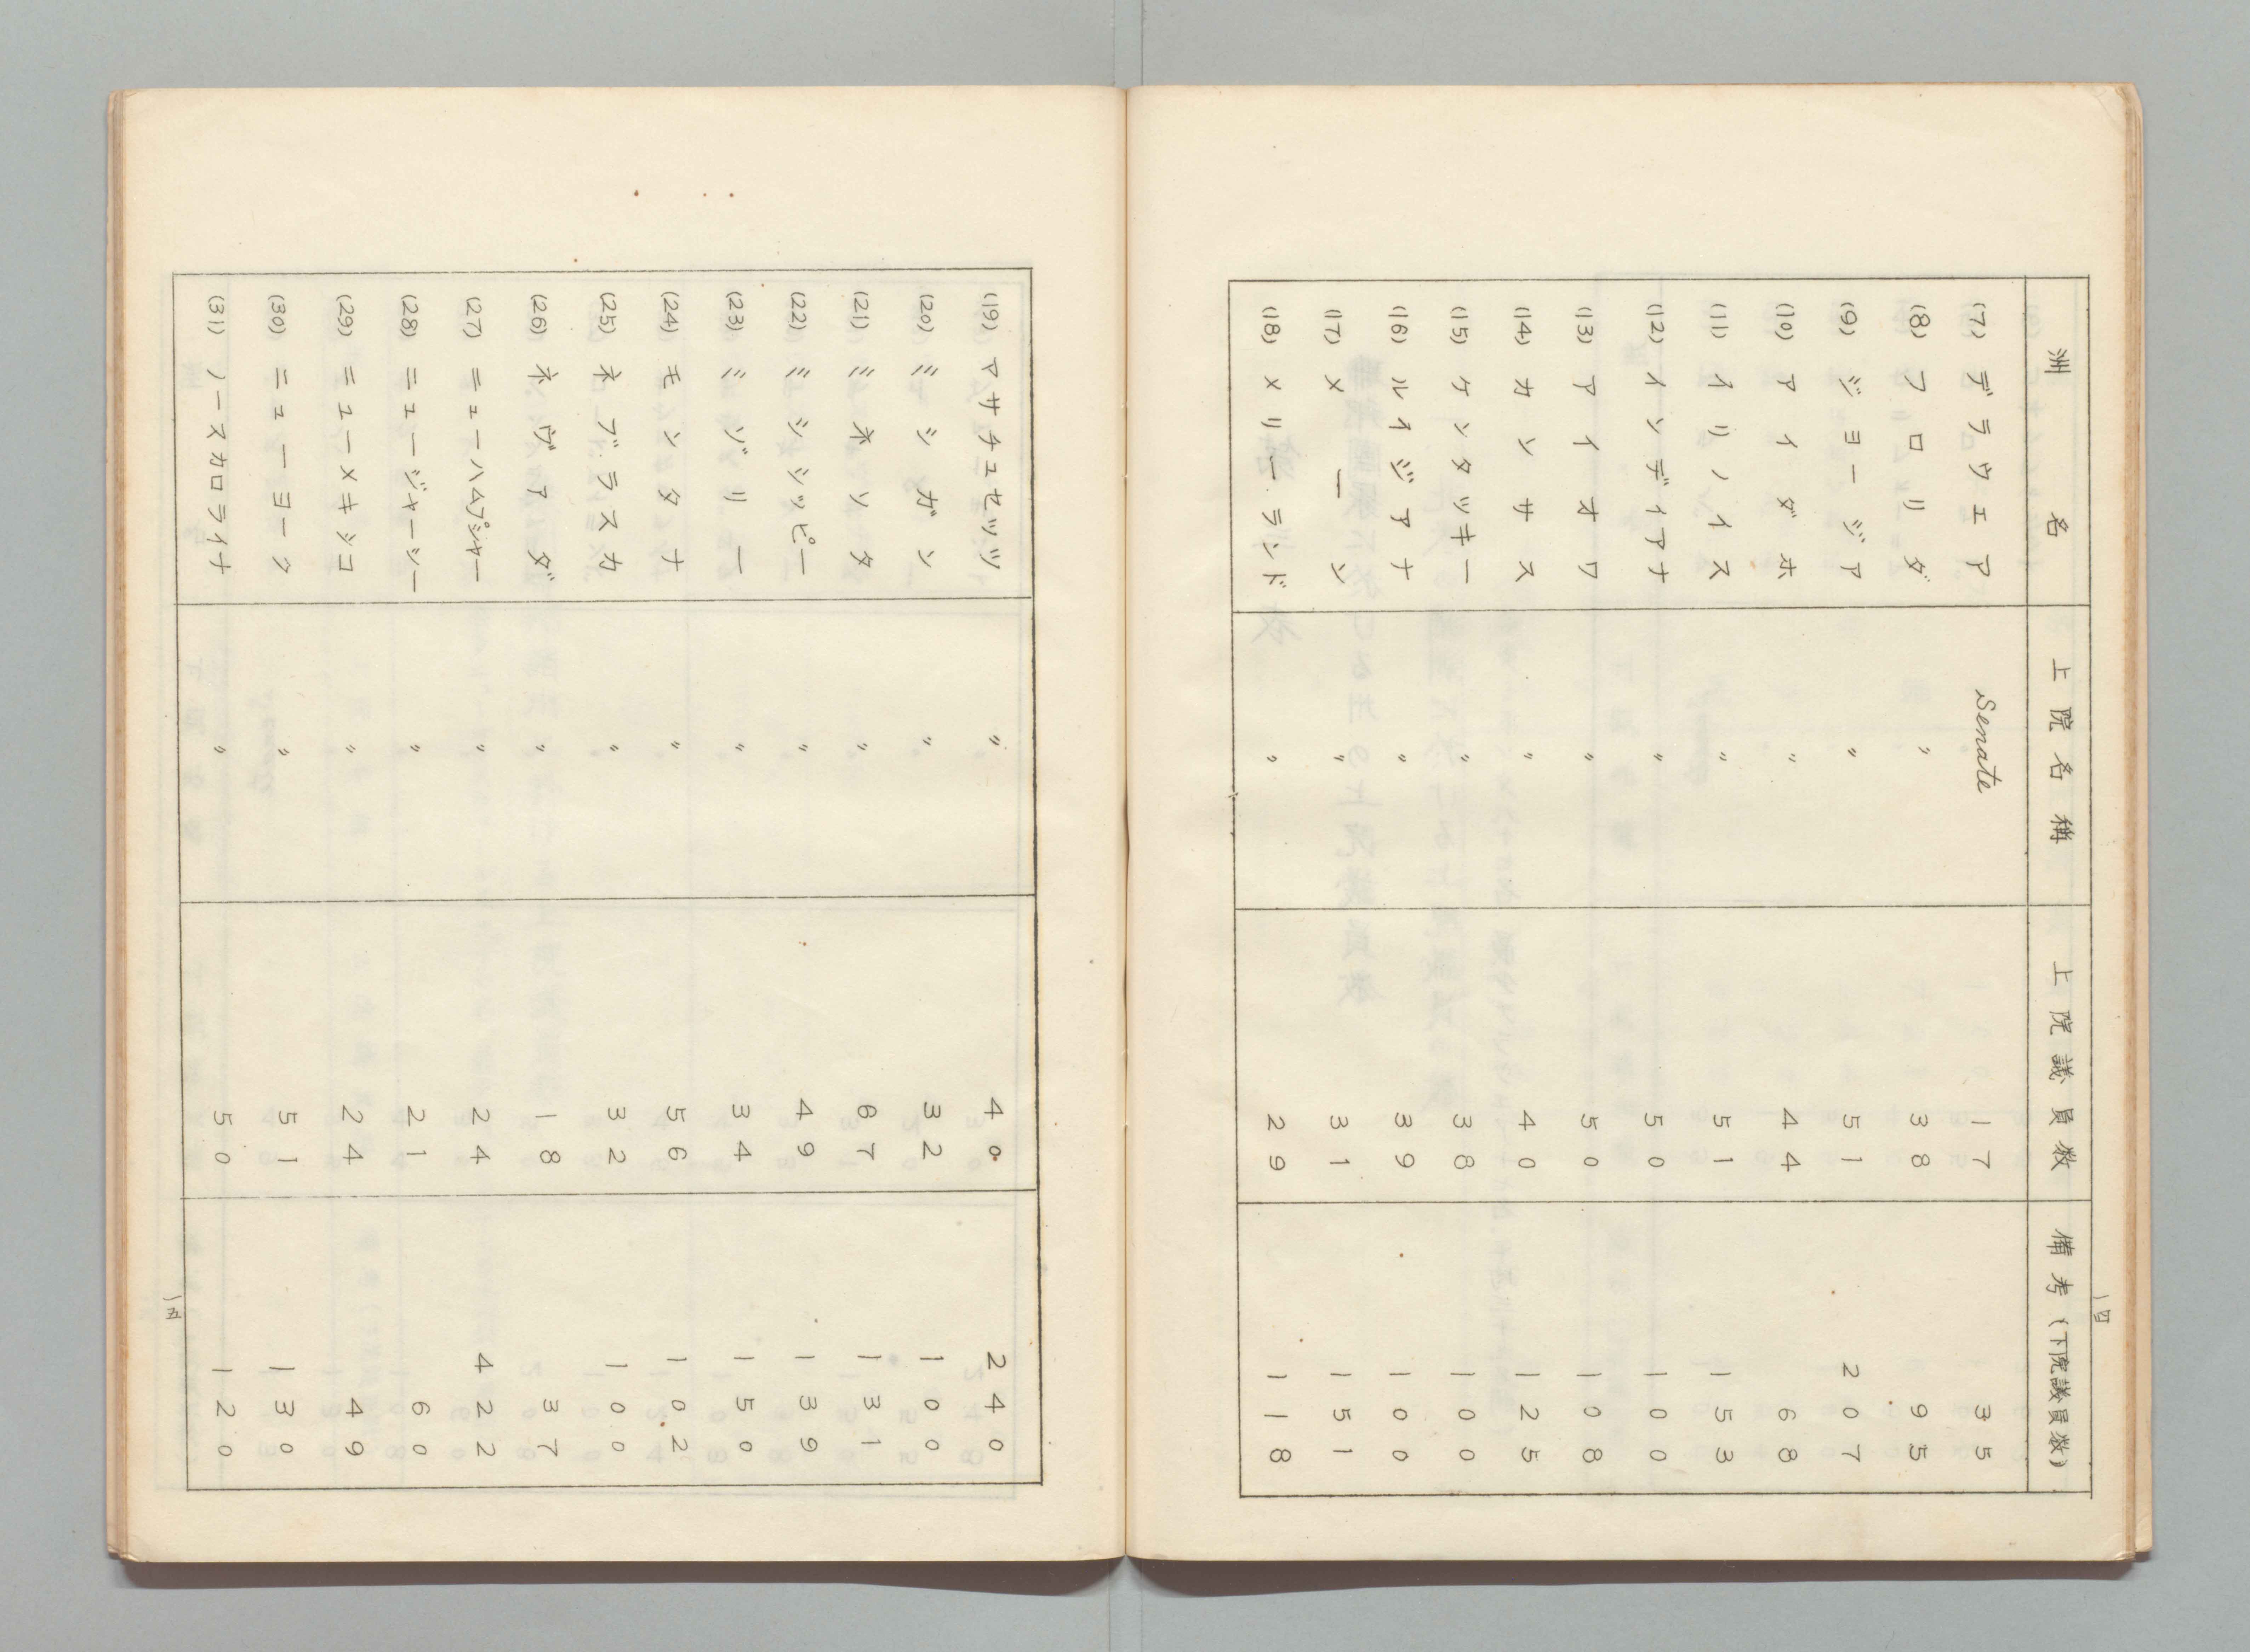 洲名 上院名稱 上院議員数 備考(下院議員数)
(7) デラウェア Senate 17 35
(8) フロリダ 〃 38 95
(9) ジヨージア 〃 51 207
(10) アイダホ 〃 44 68
(11) イリノイス 〃 51 153
(12) インディアナ 〃 50 100
(13) アイオワ 〃 50 108
(14) カンサス 〃 40 125
(15) ケンタツキー 〃 38 100
(16) ルイジアナ 〃 39 100
(17) メーン 〃 31 151
(18) メリーランド 〃 29 118
一四
(19) マサチュセッツ 〃 40 240
(20) ミシガン 〃 32 100
(21) ミネソタ 〃 67 131
(22) ミシシッピー 〃 49 139
(23) ミゾリー 〃 34 150
(24) モンタナ 〃 56 102
(25) ネブラスカ 〃 32 100
(26) ネヴアダ 〃 18 37
(27) ニューハムプシャー 〃 24 422
(28) ニュージャーシー 〃 21 60
(29) ニューメキシコ 〃 24 49
(30) ニューヨーク 〃 51 130
(31) ノースカロライナ 〃 50 120
一五